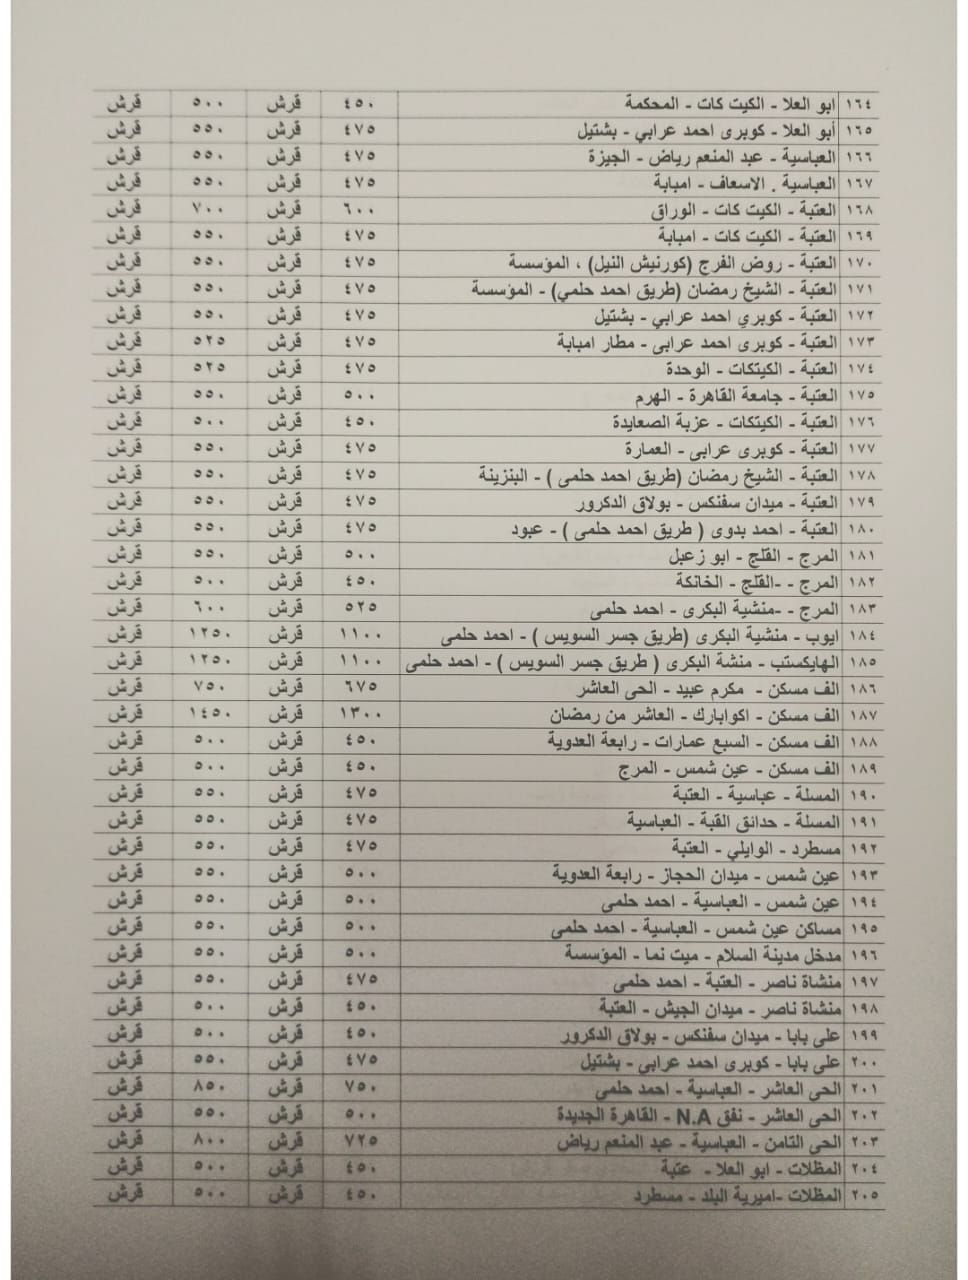 ١٦٤ ابو العلا - الكيت كات - المحكمة ٤٥٠ قرش ٥٠٠ قرش
١٦٥ أبو العلا - كوبرى احمد عرابي - بشتيل ٤٧٥ قرش ٥٥٠ قرش
١٦٦ العباسية - عبد المنعم رياض - الجيزة ٤٧٥ قرش ٥٥٠ قرش
١٦٧ العباسية . الاسعاف - امبابة ٤٧٥ قرش ٥٥٠ قرش
١٦٨ العتبة - الكيت كات - الوراق ٦٠٠ قرش ٧٠٠ قرش
١٦٩ العتبة - الكيت كات - امبابة ٤٧٥ قرش ٥٥٠ قرش
١٧٠ العتبة - روض الفرج (كورنيش النيل) ، المؤسسة ٤٧٥ قرش ٥٥٠ قرش
١٧١ العتبة - الشيخ رمضان (طريق احمد حلمي) - المؤسسة ٤٧٥ قرش ٥٥٠ قرش
١٧٢ العتبة - كوبري احمد عرابي - بشتيل ٤٧٥ قرش ٥٥٠ قرش
١٧٣ العتبة - كوبرى احمد عرابى - مطار امبابة ٤٧٥ قرش ٥٢٥ قرش
١٧٤ العتبة - الكيتكات - الوحدة ٤٧٥ قرش ٥٢٥ قرش
١٧٥ العتبة - جامعة القاهرة - الهرم ٥٠٠ قرش ٥٥٠ قرش
١٧٦ العتبة - الكيتكات - عزبة الصعايدة ٤٥٠ قرش ٥٠٠ قرش
١٧٧ العتبة - كوبرى عرابى - العمارة ٤٧٥ قرش ٥٥٠ قرش
١٧٨ العتبة - الشيخ رمضان (طريق احمد حلمى ) - البنزينة ٤٧٥ قرش ٥٥٠ قرش
١٧٩ العتبة - ميدان سفنكس - بولاق الدكرور ٤٧٥ قرش ٥٥٠ قرش
١٨٠ العتبة - احمد بدوى ( طريق احمد حلمى ) - عبود ٤٧٥ قرش ٥٥٠ قرش
١٨١ المرج - القلج - ابو زعبل ٥٠٠ قرش ٥٥٠ قرش
١٨٢ المرج - -القلج - الخانكة ٤٥٠ قرش ٥٠٠ قرش
١٨٣ المرج - -منشية البكرى - احمد حلمى ٥٢٥ قرش ٦٠٠ قرش
١٨٤ ايوب - منشية البكرى (طريق جسر السويس ) - احمد حلمى ١١٠٠ قرش ١٢٥٠ قرش
١٨٥ الهايكستب - منشة البكرى ( طريق جسر السويس ) - احمد حلمى ١١٠٠ قرش ١٢٥٠ قرش
١٨٦ الف مسكن - مكرم عبيد - الحى العاشر ٦٧٥ قرش ٧٥٠ قرش
١٨٧ الف مسكن - اكوابارك - العاشر من رمضان ١٣٠٠ قرش ١٤٥٠ قرش
١٨٨ الف مسكن - السبع عمارات - رابعة العدوية ٤٥٠ قرش ٥٠٠ قرش
١٨٩ الف مسكن - عين شمس - المرج ٤٥٠ قرش ٥٠٠ قرش
١٩٠ المسلة - عباسية - العتبة ٤٧٥ قرش ٥٥٠ قرش
١٩١ المسلة - حدائق القبة - العباسية ٤٧٥ قرش ٥٥٠ قرش
١٩٢ مسطرد - الوايلي - العتبة ٤٧٥ قرش ٥٥٠ قرش
١٩٣ عين شمس - ميدان الحجاز - رابعة العدوية ٥٠٠ قرش ٥٥٠ قرش
١٩٤ عين شمس - العباسية - احمد حلمى ٥٠٠ قرش ٥٥٠ قرش
١٩٥ مساكن عين شمس - العباسية - احمد حلمى ٥٠٠ قرش ٥٥٠ قرش
١٩٦ مدخل مدينة السلام - ميت نما - المؤسسة ٥٠٠ قرش ٥٥٠ قرش
١٩٧ منشاة ناصر - العتبة - احمد حلمى ٤٧٥ قرش ٥٥٠ قرش
١٩٨ منشاة ناصر - ميدان الجيش - العتبة ٤٥٠ قرش ٥٠٠ قرش
١٩٩ على بابا - ميدان سفنكس - بولاق الدكرور ٤٥٠ قرش ٥٠٠ قرش
٢٠٠ على بابا - كوبرى احمد عرابي - بشتيل ٤٧٥ قرش ٥٥٠ قرش
٢٠١ الحى العاشر - العباسية - احمد حلمي ٧٥٠ قرش ٨٥٠ قرش
٢٠٢ الحى العاشر - نفق N.A - القاهرة الجديدة ٥٠٠ قرش ٥٥٠ قرش
٢٠٣ الحى الثامن - العباسية - عبد المنعم رياض ٧٢٥ قرش ٨٠٠ قرش
٢٠٤ المظلات - ابو العلا - عتبة ٤٥٠ قرش ٥٠٠ قرش
٢٠٥ المظلات -اميرية البلد - مسطرد ٤٥٠ قرش ٥٠٠ قرش